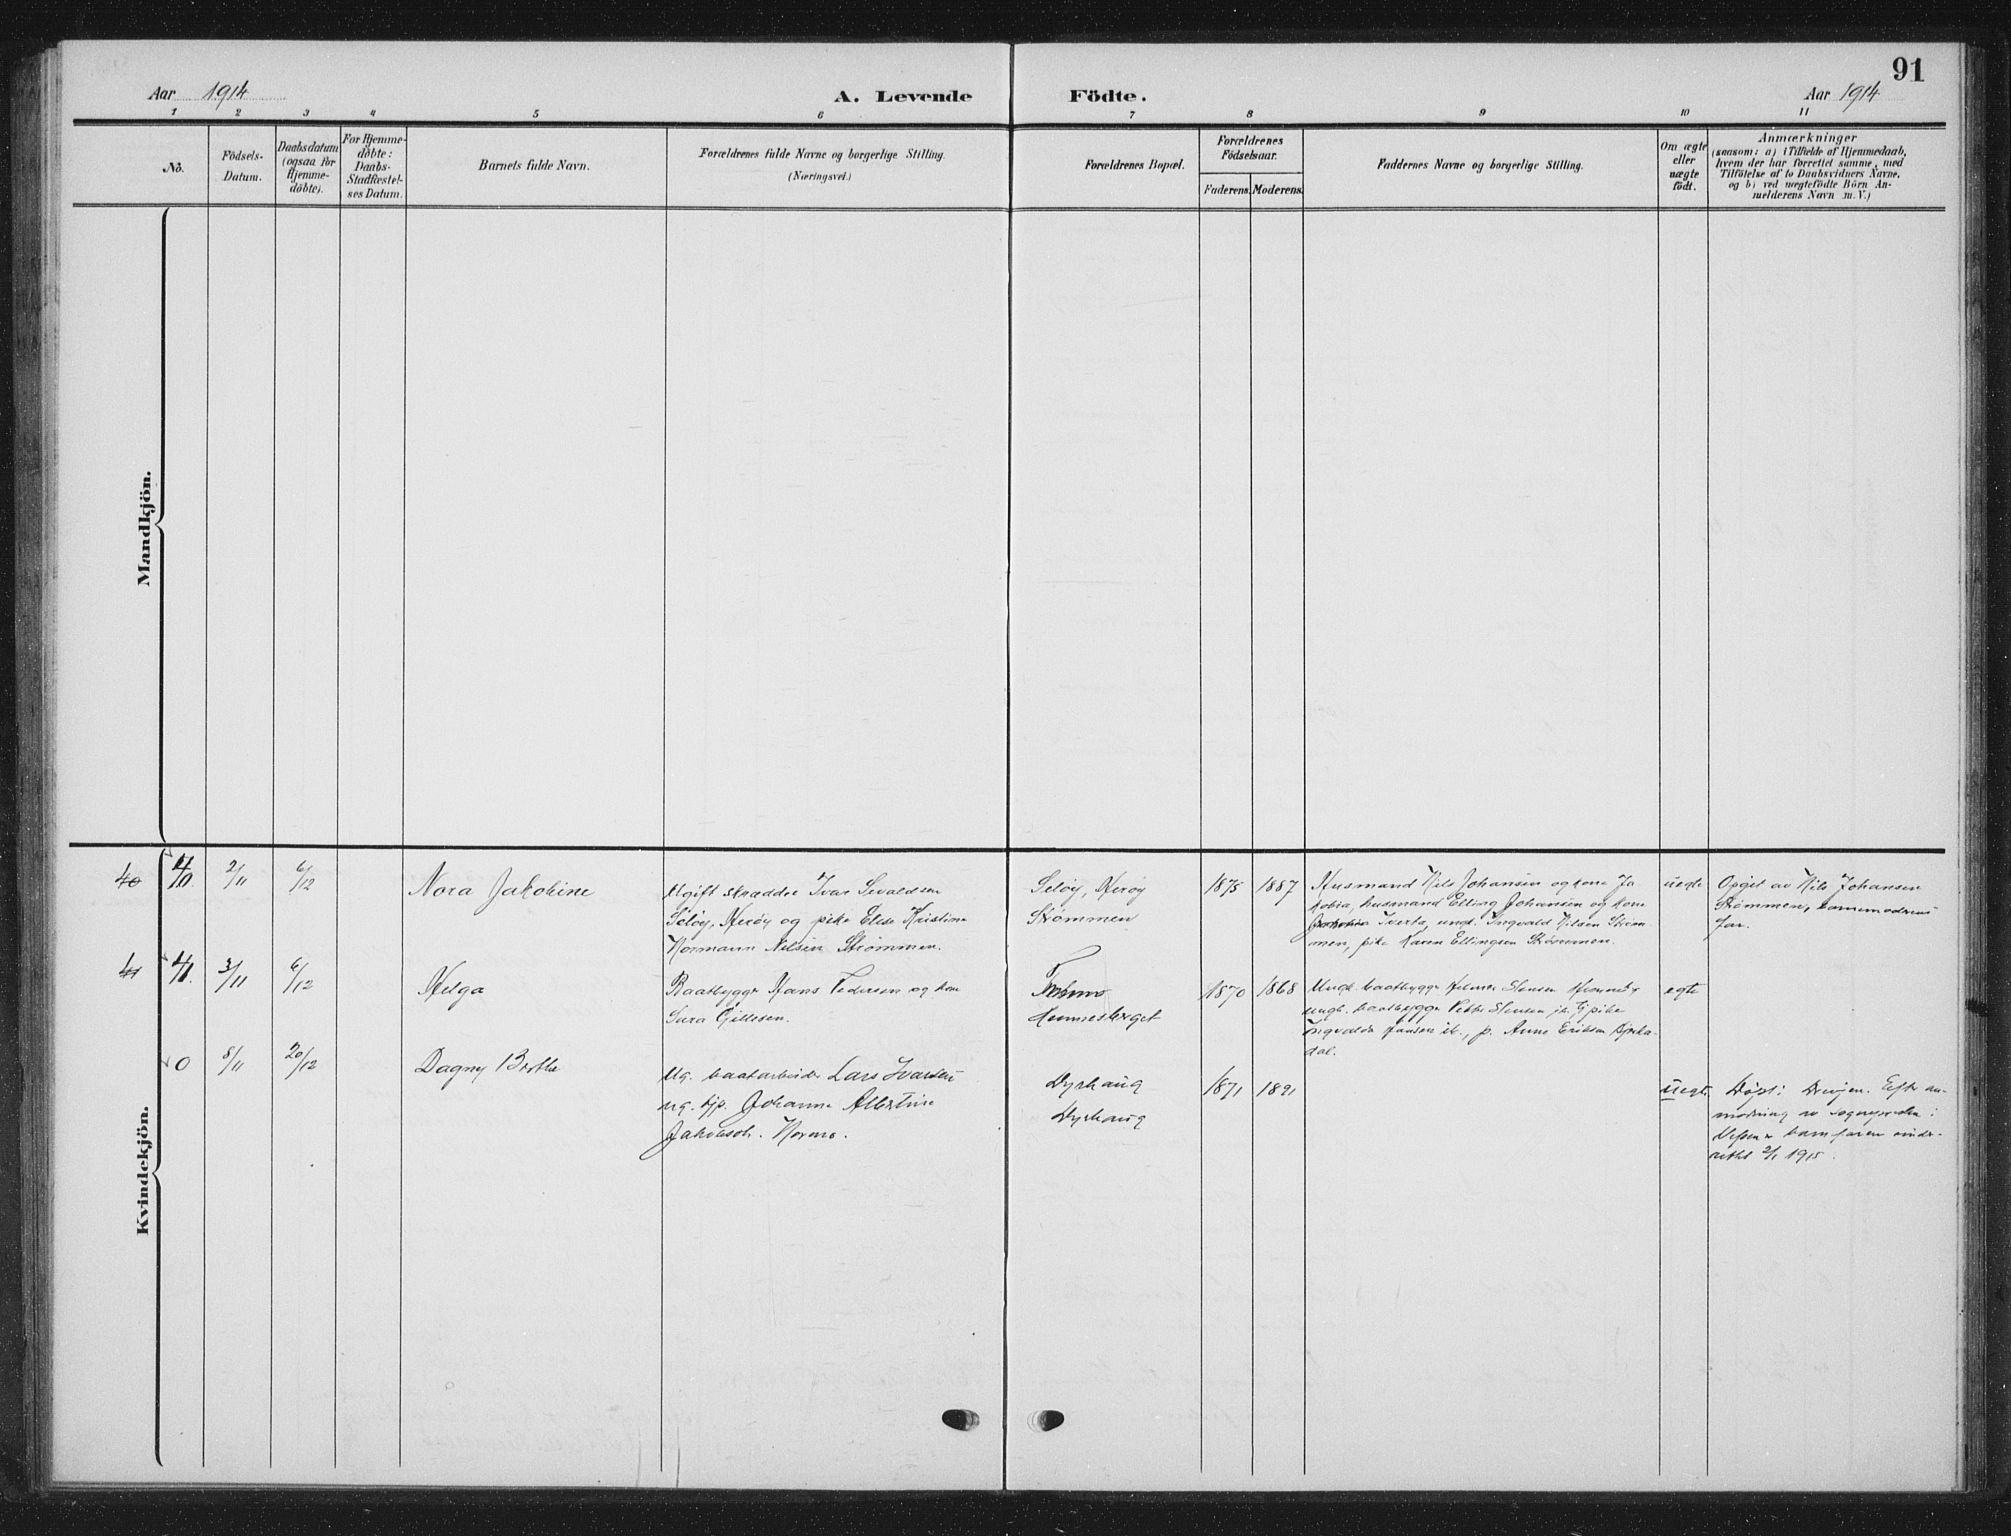 91
Aar 1914
A. Levende Födte.
Aar 1914
1 2 3 4 5 6 7 8 9 10 11
No.
Födsels-
Datum.
Daabsdatum
(ogsaa for
Hjemme-
döbte).
For Hjemme-
döbte:
Daabs-
Stadfæstel-
ses Datum.
Barnets fulde Navn.
Forældrenes fulde Navne og borgerlige Stilling.
(Næringsvei.)
Forældrenes Bopæl.
Forældrenes
Födselsaar.
Faderens. Moderens.
Faddernes Navne og borgerlige Stilling.
Om ægte
eller
uægte
födt.
Anmærkninger
(saasom: a) i Tilfælde af Hjemmedaab,
hvem der har forrettet samme, med
Tilföielse af to Daabsvidners Navne,
og b) ved uægtefödte Börn An-
melderens Navn m. V.)
Mandkjön.
Kvindekjön.
40
40.
2/11
6/12
Nora Jakobine
Ugift skrædder Ivar Sevaldsen
Seløy, Herøy og pike Elise Kristine
Normann Nilsen Strømmen.
Seløy, Herøy
Strømmen
1875
1887
Husmand Nils Johansen og kone Ja
kobia, husmand Elling Johansen og kone
Iverta, ungk. Ingvald Nilsen Strøm-
men, pike Karen Ellingsen Strømmen.
uegte
Opgit av Nils Johansen
Strømmen, barnemoderens
far.
41
41.
3/11
6/12
Helga
Baatbygger Hans Pedersen og kone
Sara Gillesen.
Hemnesberget
1870
1868
Ungk. baatbygger Helmer Stensen Hemnesb.
ungk. baatbygger Petter Stensen ib. pike
Ingvalda Hansen ib., p. Anne Eriksen Bjerka-
dal.
egte
0
8/11
20/12
Dagny Berthe
Ug. baatarbeider Lars Ivarsen
ug. tjp. Johanna Albertine
Jakobsdt. Hernes.
Dyrhaug
Dyrhaug
1871
1891
uegte
Døpt i Drevjen. Efter an-
modning av sognepræsten i
Vefsen er barnefaren under-
rettet 2/1 1915.